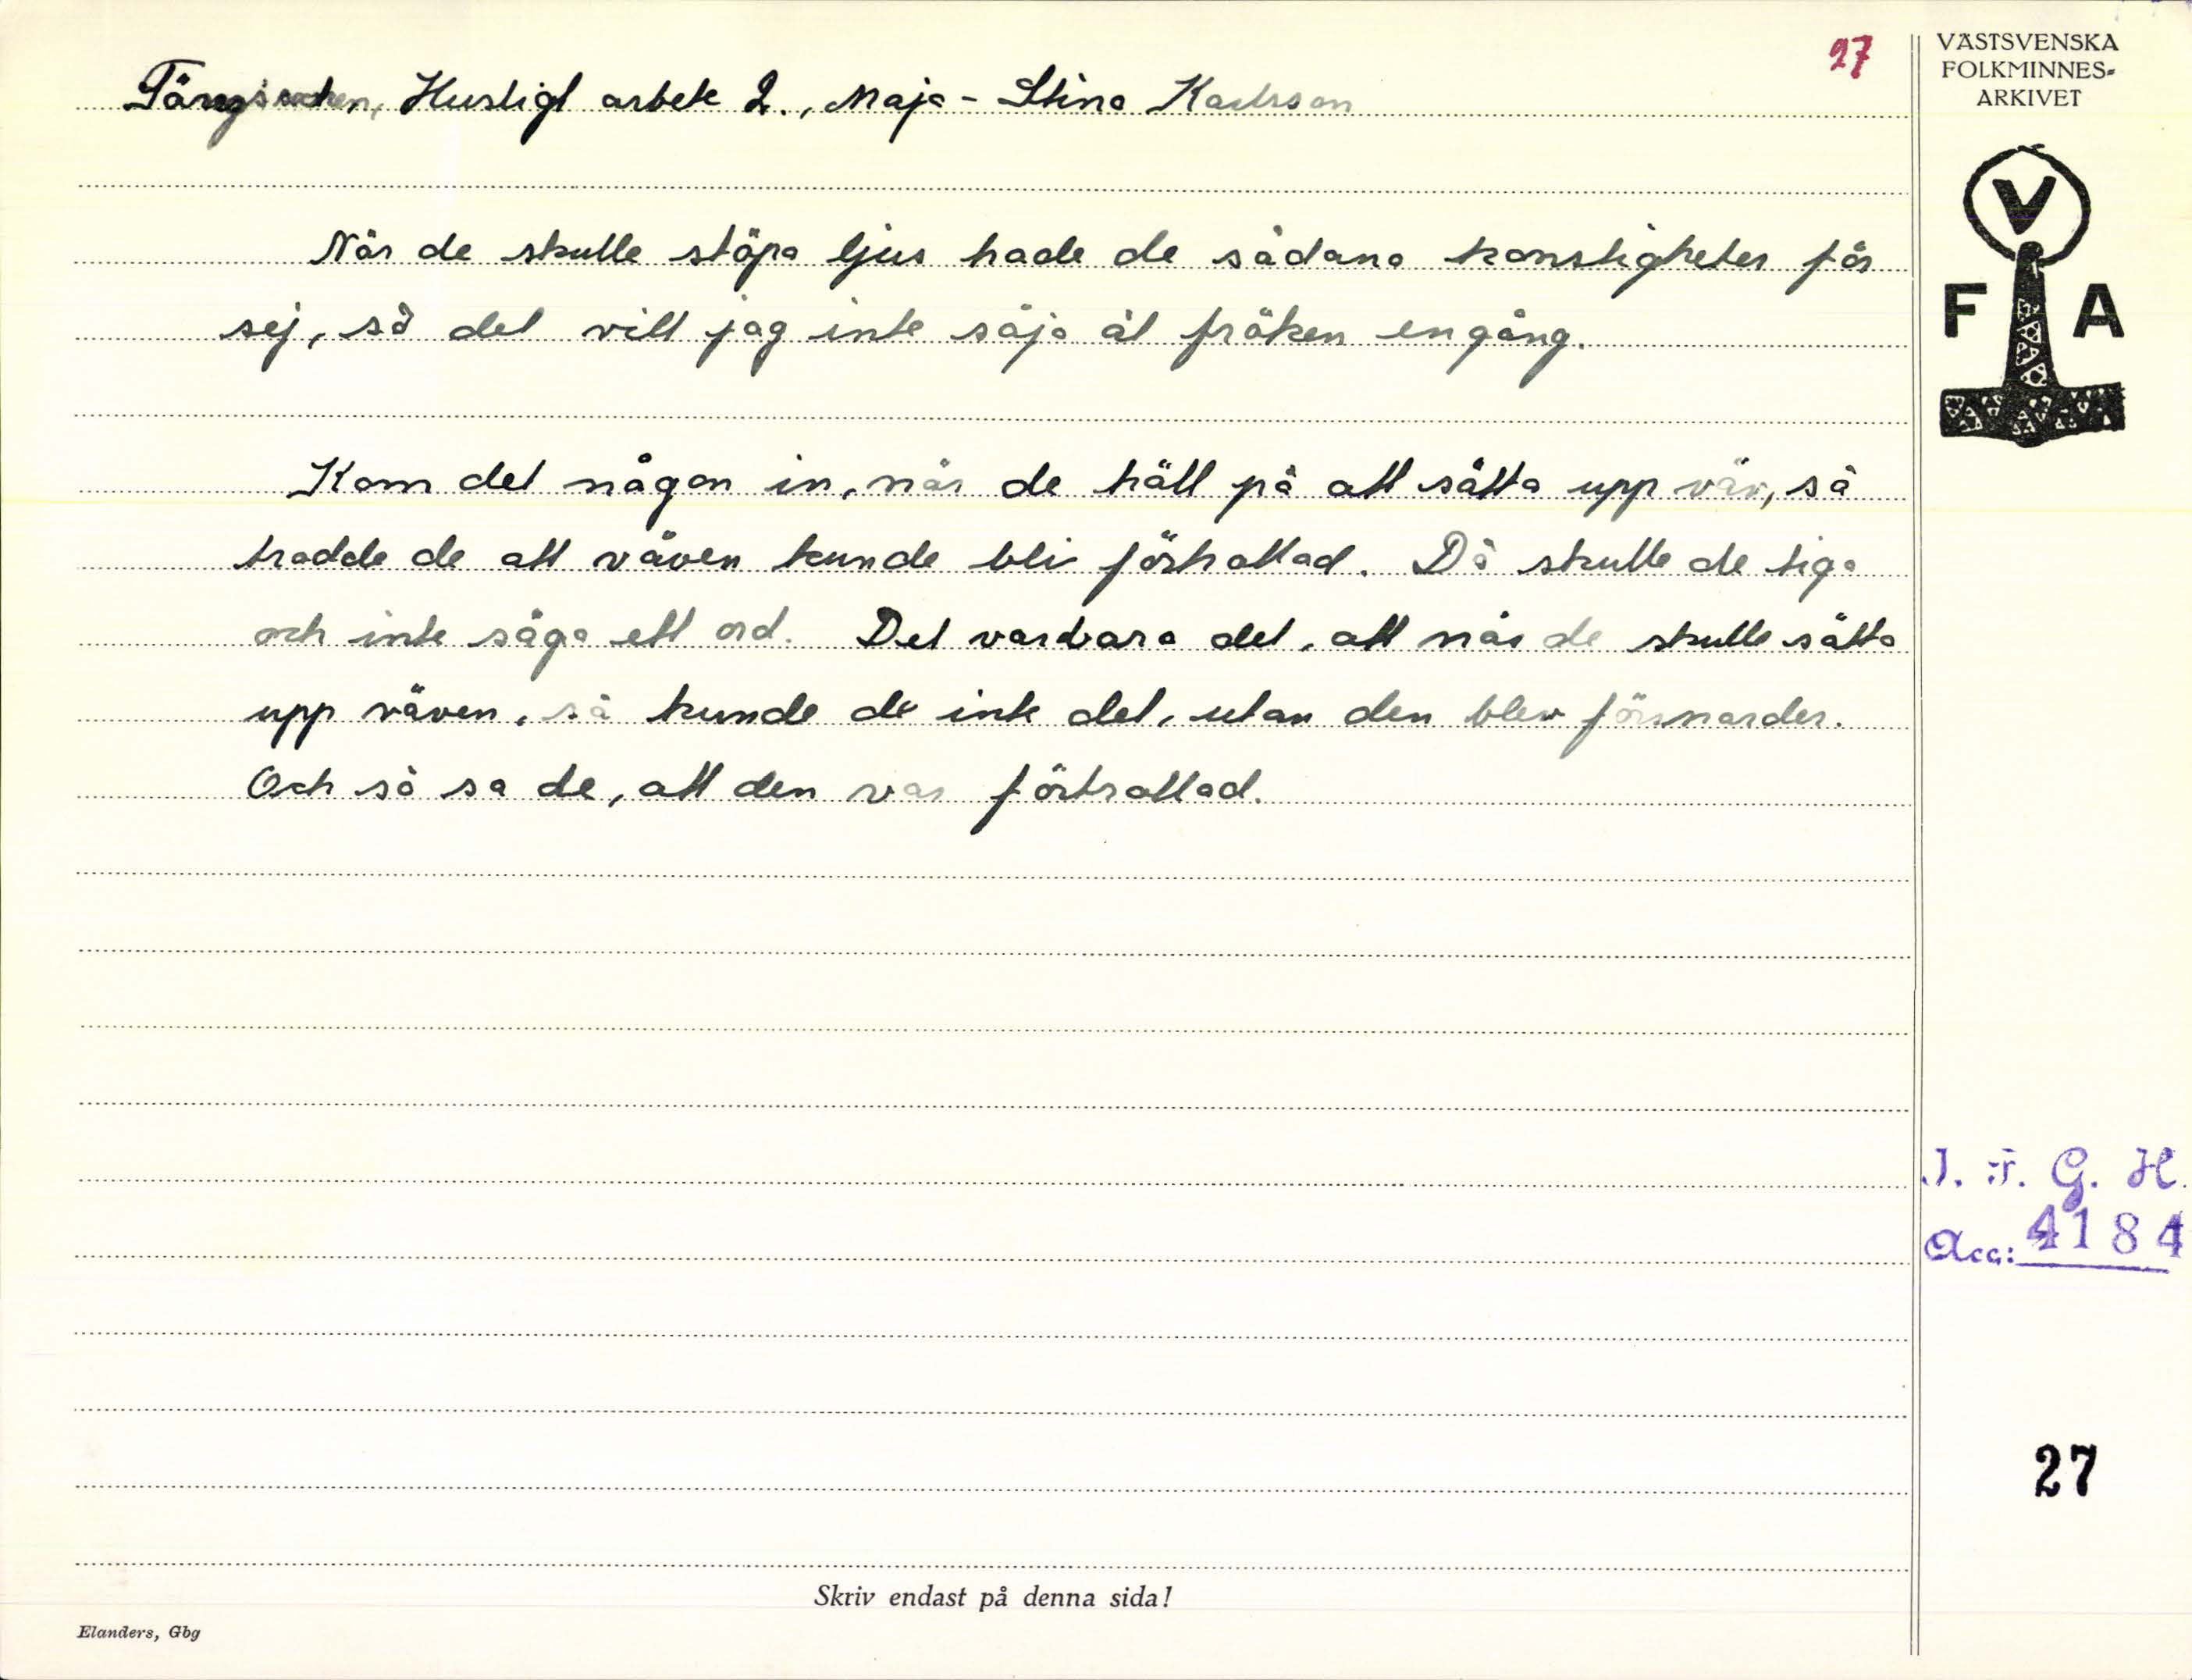 27
Täng socken, Husligt arbete 2., Maja-Stina Karlsson
När de skulle stöpa ljus hade de sådana konstigheter för
sej, så det vill jag inte säja åt fröken engång.
Kom det någon in, när de höll på att sätta upp väv, så
trodde de att väven kunde bli förtrollad. Då skulle de tiga
och inte säga ett ord. Det var bara det, att när de skulle sätta
upp väven, så kunde de inte det, utan den blev
Och så sa de, att den var förtrollad.
Skriv endast på denna sida!
Elanders, Gbg
VÄSTSVENSKA
FOLKMINNES-
ARKIVET
V
F A
I. F. G. H.
Acc: 4184
27